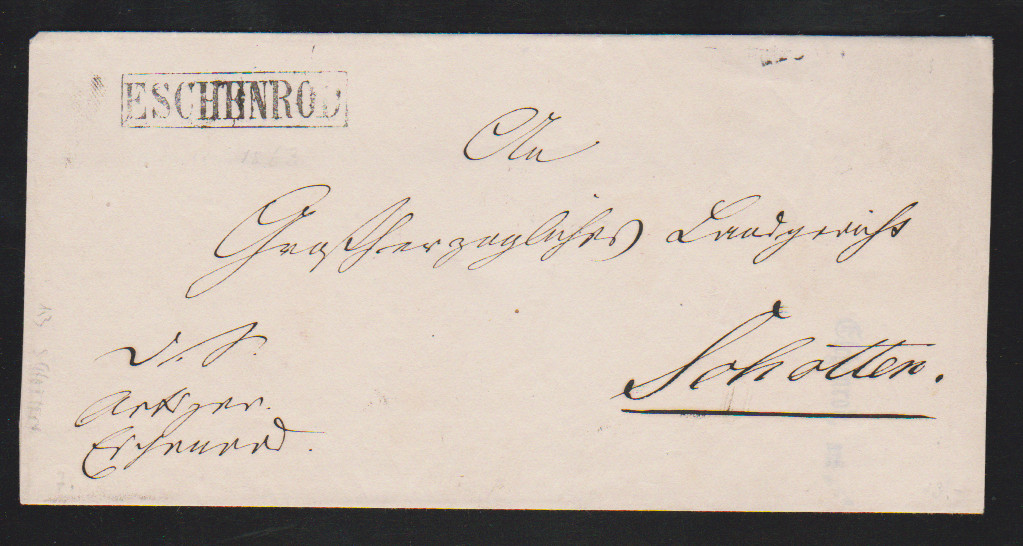 ESCHENROD
An
Großherzogliches Landgericht
Schotten.
D. S.
Ortsger.
Eschenrod.